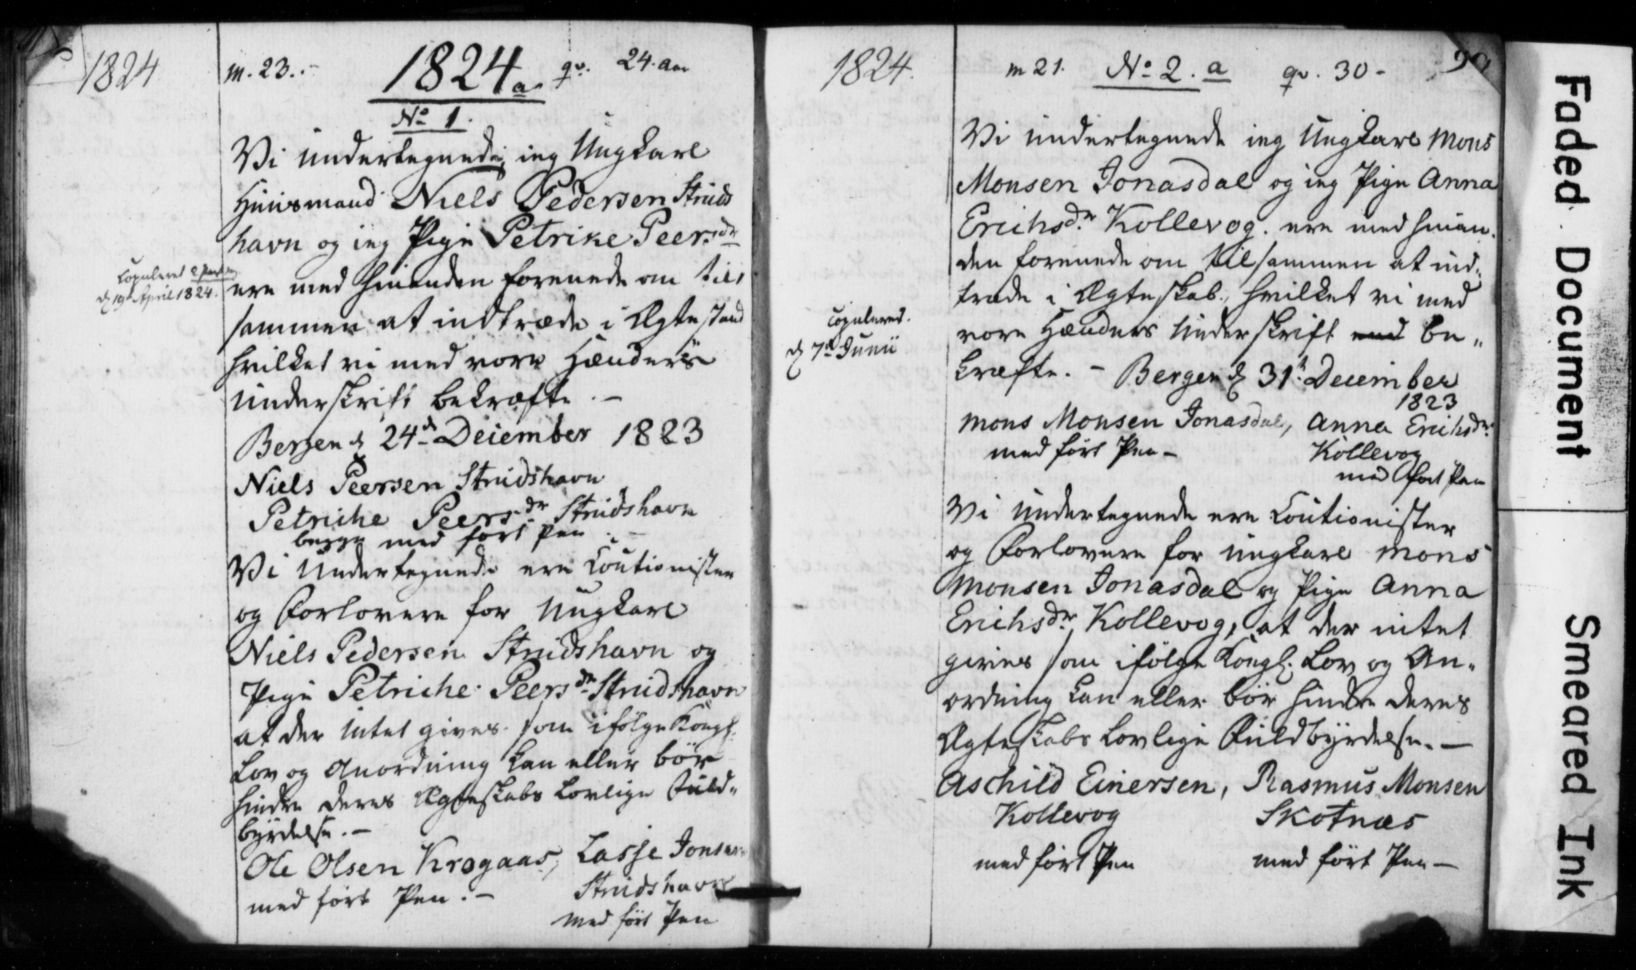 1824
m. 23.
1824 a
qv. 24. aar
No 1.
Vi undertegnede, ieg Ungkarl
Huusmand Niels Pedersen Struds
havn og ieg Pige Petrike Peersdr
ere med hinanden forenede om til
sammen at indtræde i Ægtestand
hvilket vi med vore Hænders
underskrift bekræfte. –
Bergen d 24de December 1823
Niels Peersen Strudshavn
Petriche Peersdr Strudshavn
begge med ført Pen
Vi undertegnede ere Coutionister
og Forlovere for Ungkarl
Niels Pedersen Strudshavn og
Pige Petriche Peersdr Strudshavn
at der intet gives som ifølge Kongl.
Lov og Anordning kan eller bør
hindre deres Ægteskabs lovlige Fuld-
byrdelse. –
Ole Olsen Krogaas, Lasse Jonsen
Strudshavn
med ført Pen. –
med ført Pen
Copuleret
d 19de April 1824.
1824.
m 21. No 2. a qv. 30 -
Vi undertegnede ieg Ungkarl Mons
Monsen Jonasdal og ieg Pige Anna
Erichsdr Kollevog. ere med hinan-
den forenede om tilsammen at ind-
træde i Ægteskab, hvilket vi med
vore Hænders Underskrift med be-
kræfte. – Bergen d 31te December
1823
Mons Monsen Jonasdal, Anna Erichsdr
med ført Pen –
Kollevog
med ført Pen
Vi undertegnede ere Coutionister
og Forlovere for Ungkarl Mons
Monsen Jonasdal og Pige Anna
Erichsdr Kollevog, at der intet
gives som ifølge Kongl. Lov og An-
ordning kan eller bør hindre deres
Ægteskabs lovlige Fuldbyrdelse. –
Aschild Einersen, Rasmus Monsen
Kollevog Skotnæs
med ført Pen med ført Pen –
Copuleret.
d 7de Junii
Faded Document
Smeared Ink